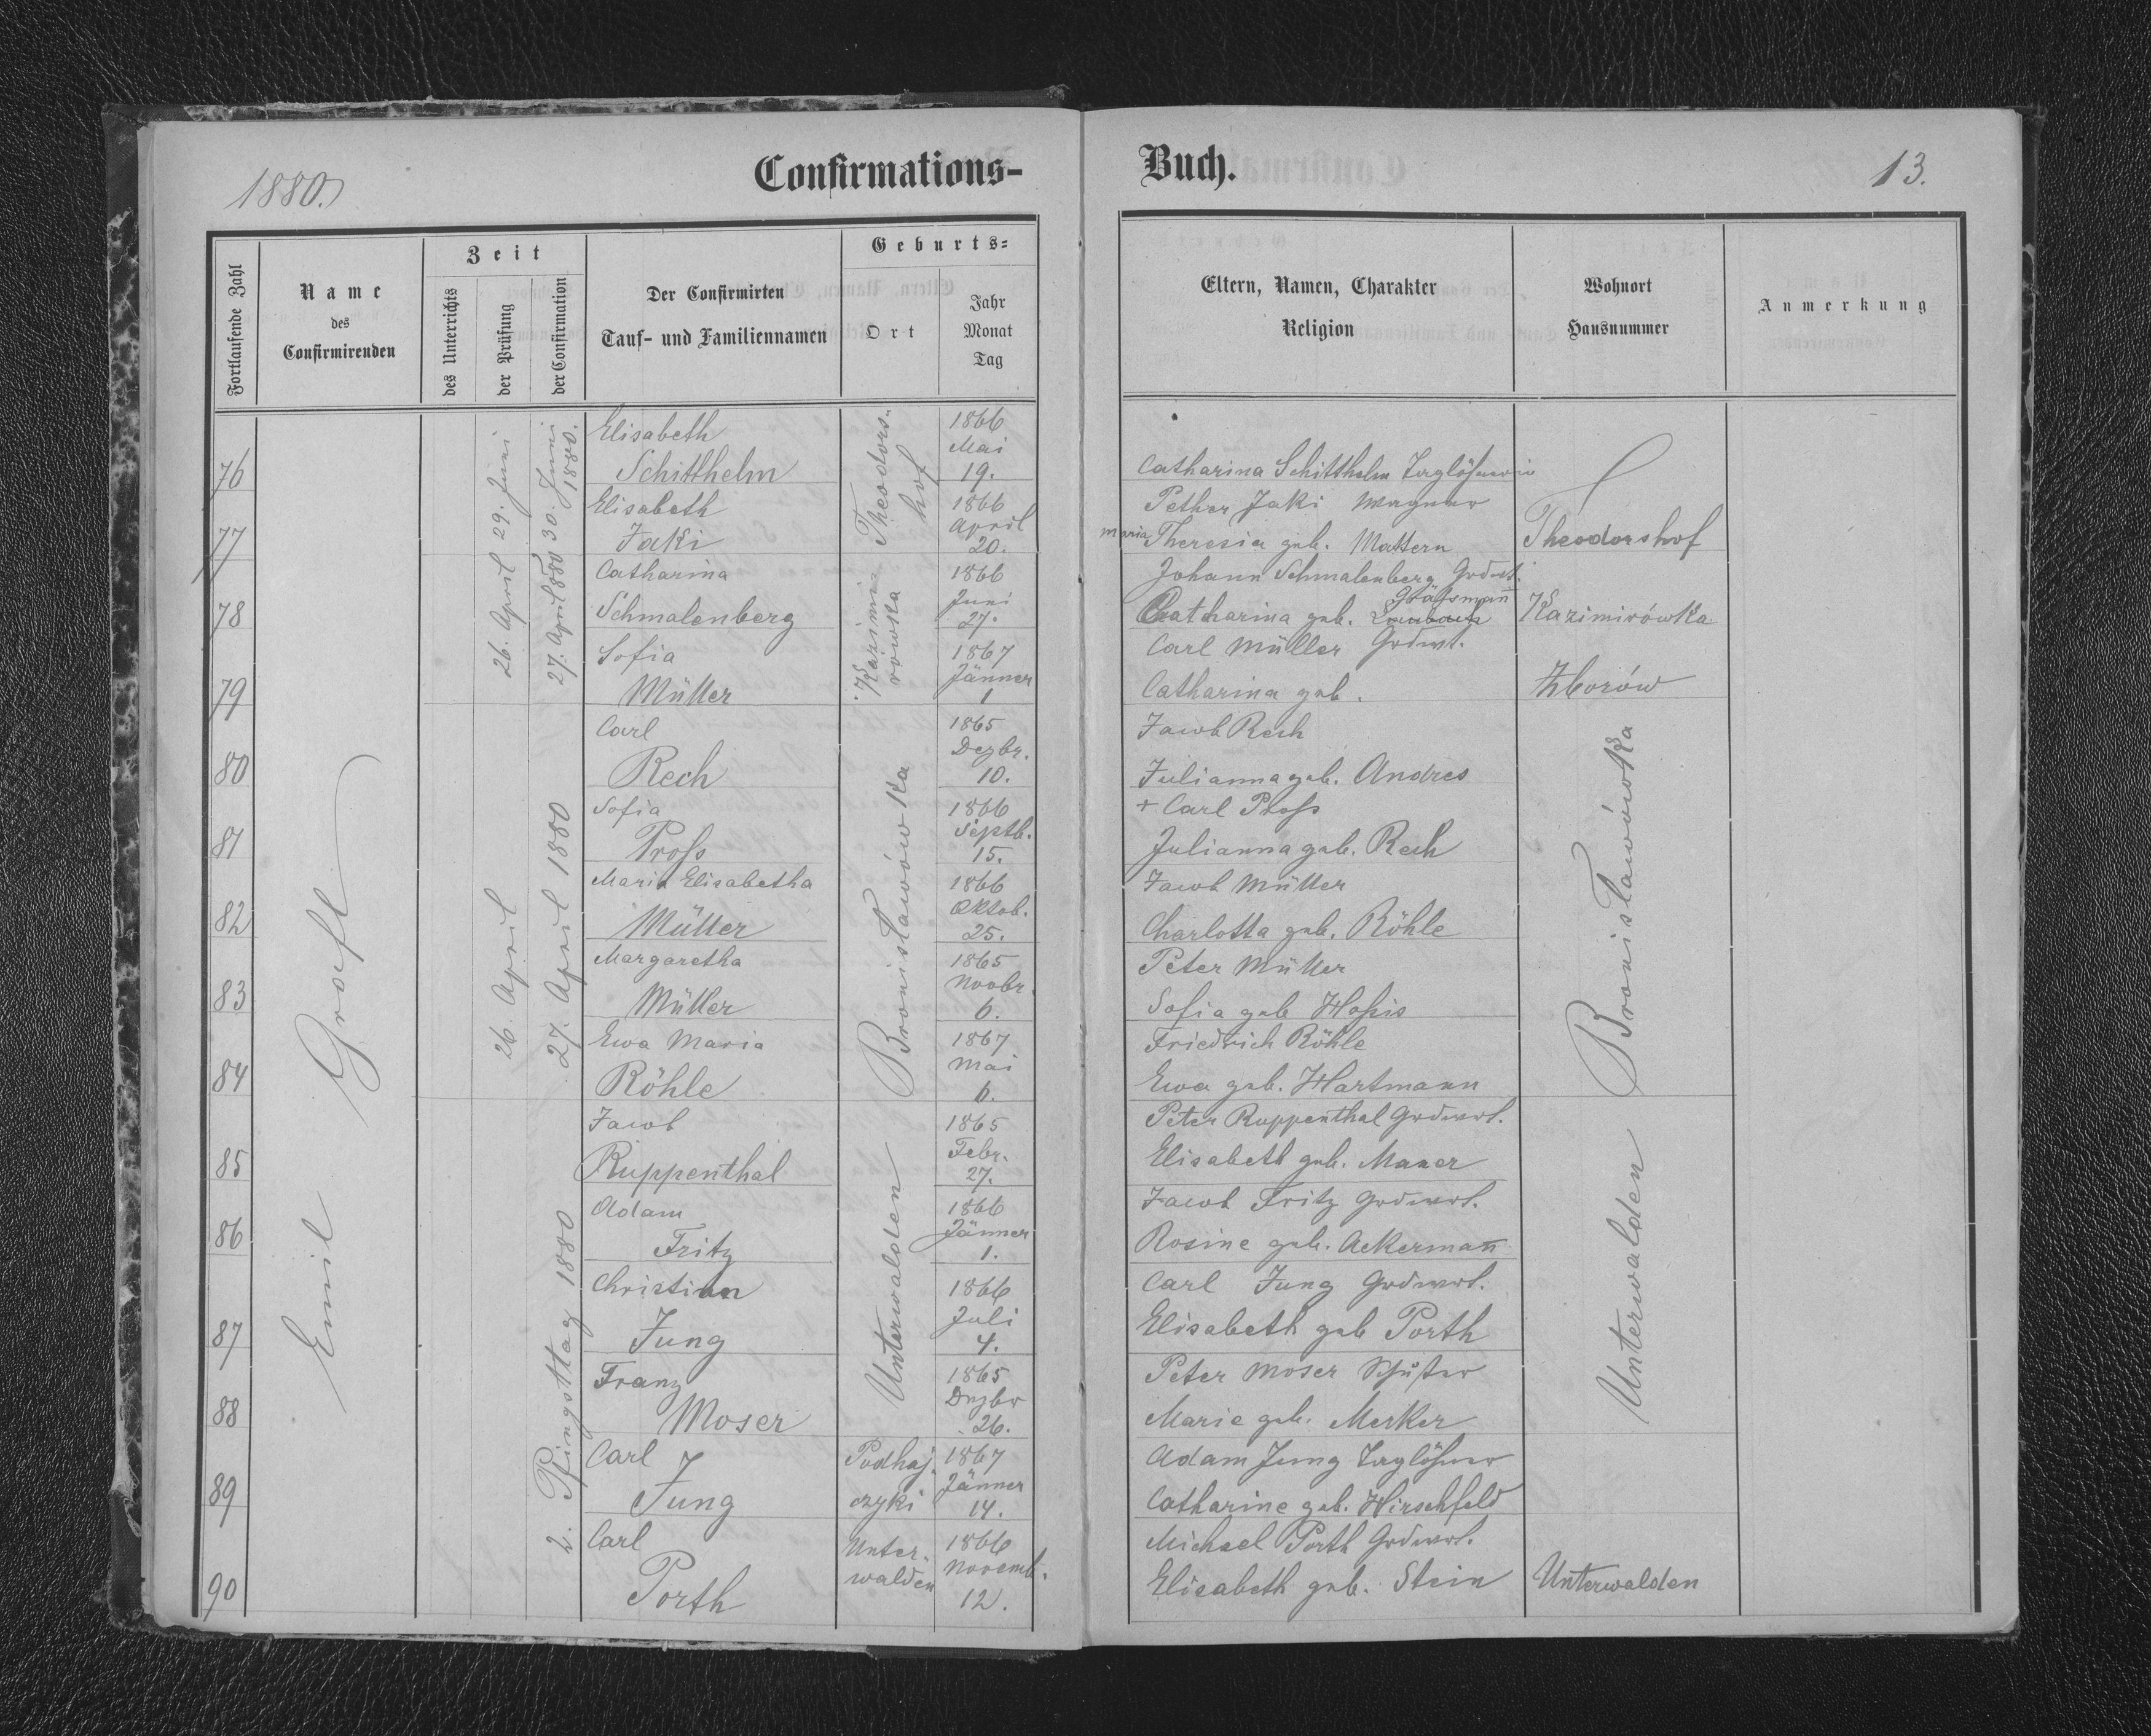 1880.
Confirmations-
Buch.
13.
Fortlaufende Zahl
Name
des
Confirmirenden
Zeit
des Unterrichts
der Prüfung
der Confirmation
Der Confirmirten
Tauf- und Familiennamen
Geburts-
Ort
Jahr
Monat
Tag
Eltern, Namen, Charakter
Religion
Wohnort
Hausnummer
Anmerkung
Emil Graefl
29. Juni
30. Juni 1880.
26. April
27. April 1880
26. April
27. April 1880
2. Pfingsttag 1880
Theodors-
hof
Kazimi-
rowka
Bronisławówka
Unterwalden
76
Elisabeth
Schitthelm
1866
Mai
19.
Catharina Schitthelm Taglöhnerin
77
Elisabeth
Jaki
1866
April
20.
Pether Jaki Wagner
maria Theresia geb. Mattern
Theodorshof
78
Catharina
Schmalenberg
1866
Juni
27.
Johann Schmalenberg Grdwt.
Gräßsmann̄
Catharina geb.
Kazimirówka
79
Sofia
Müller
1867
Jänner
1
Carl Müller Grdwt.
Catharina geb.
Zborów
80
Carl
Rech
1865
Dezbr.
10.
Jacob Rech
Julianna geb. Andres
81
Sofia
Proß
1866
Septb.
15.
+ Carl Proß
Julianna geb. Rech
82
Maria Elisabetha
Müller
1866
Oktob.
25.
Jacob Müller
Charlotta geb. Röhle
83
Margaretha
Müller
1865
Novbr.
6.
Peter Müller
Sofia geb Hoßis
84
Ewa Maria
Röhle
1867
Mai
6.
Friedrich Röhle
Ewa geb. Hartmann
Bronisławówka
85
Jacob
Ruppenthal
1865
Febr.
27.
Peter Ruppenthal Grdwrt.
Elisabeth geb. Maner
86
Adam
Fritz
1866
Jänner
1.
Jacob Fritz Grdwrt.
Rosine geb. Ackerman̄
87
Christian
Jung
1866
Juli
4.
Carl Jung Grdwrt.
Elisabeth geb Porth
88
Franz
Moser
1865
Dezbr
26.
Peter Moser Schuster
Marie geb. Merker
Unterwalden
89
Carl
Jung
Podhaj-
czyki
1867
Jänner
14.
Adam Jung Taglöhner
Catharine geb. Hirschfeld
90
Carl
Porth
Unter-
walden
1866
Novemb.
12.
Michael Porth Grdwrt.
Elisabeth geb. Stein
Unterwalden